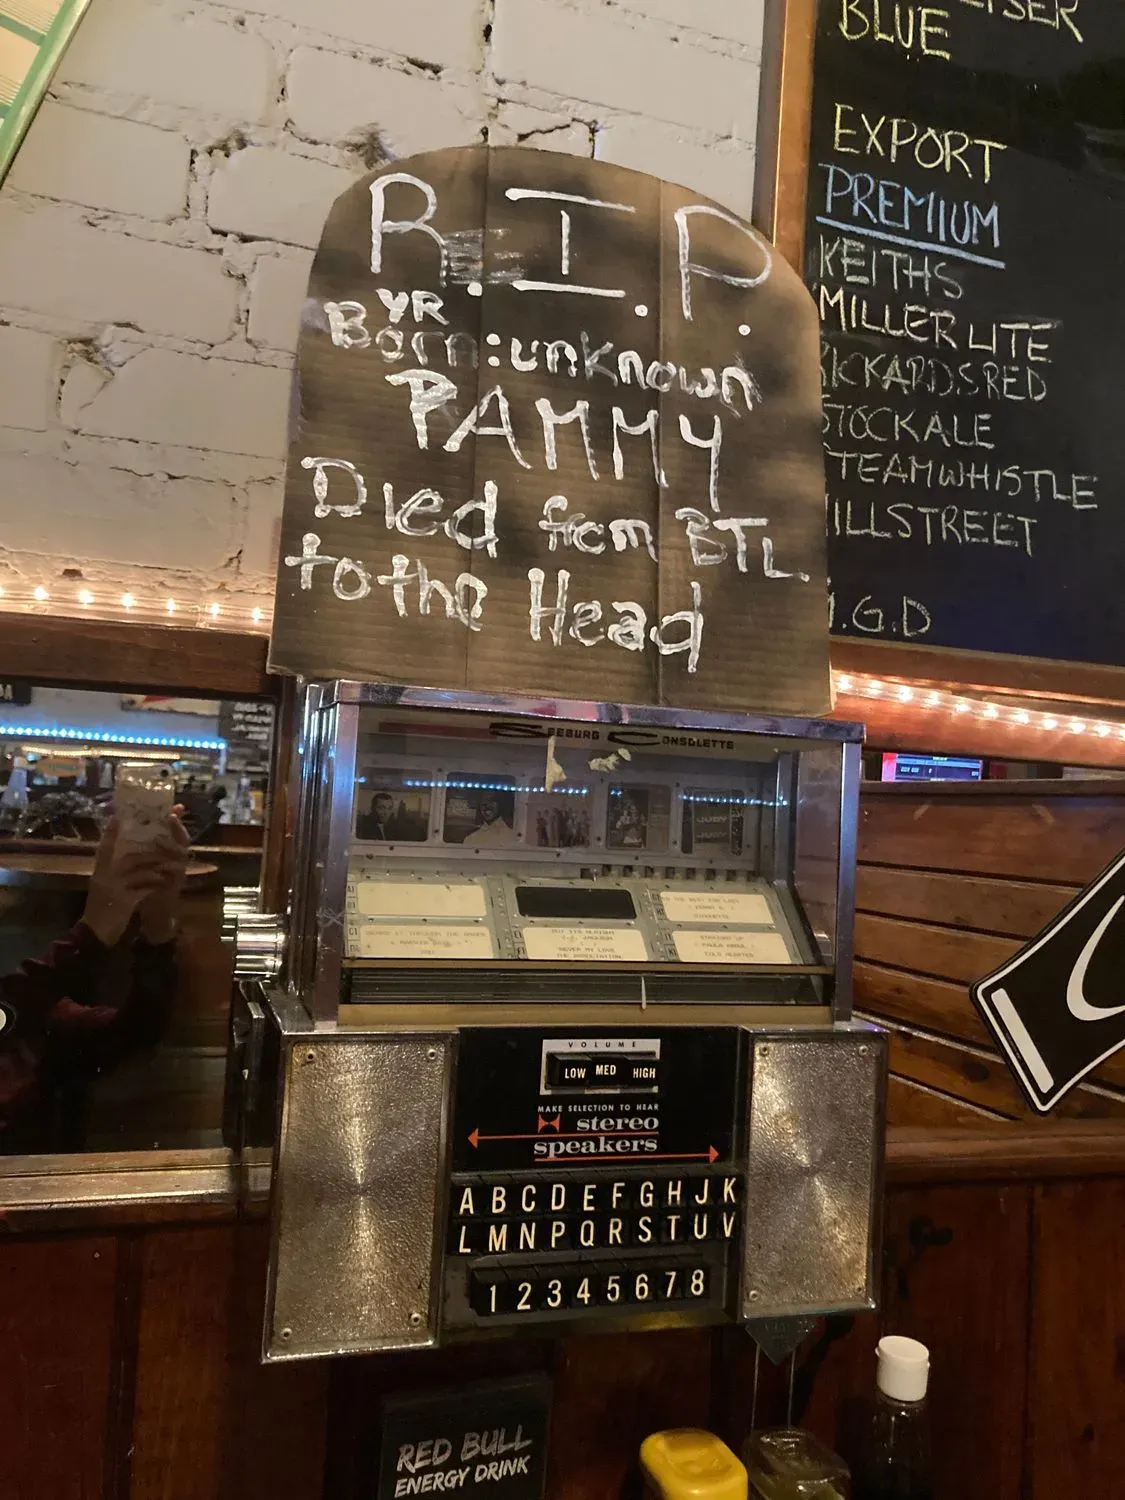 BLUE
EXPORT
PREMIUM
KEITHS
MILLER LITE
RICKARDS RED
STOCK ALE
STEAMWHISTLE
MILLSTREET
M.G.D
R.I.P.
YR
Born: unknown
PAMMY
Died from BTL.
to the Head
SEEBURG CONSOLETTE
JUDY
JUDY
VOLUME
LOW MED HIGH
MAKE SELECTION TO HEAR
stereo
speakers
A B C D E F G H J K
L M N P Q R S T U V
1 2 3 4 5 6 7 8
RED BULL
ENERGY DRINK